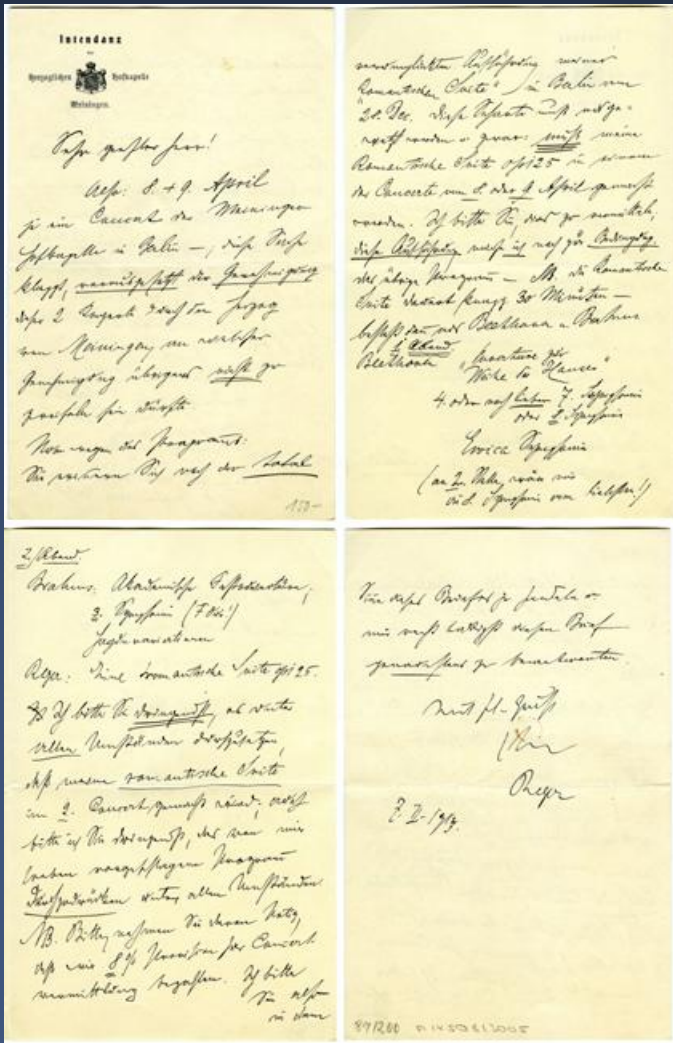 Intendanz
der
Herzoglichen Hofkapelle
Meiningen.
Sehr geehrter Herr!
Also: 8. + 9. April
je ein Concert der Meininger
Hofkapelle in Berlin –, diese Sache
klappt, vorausgesetzt die Genehmigung
dieser 2 Concerte durch den Herzog
von Meiningen, an welcher
Genehmigung übrigens nicht zu
zweifeln sein dürfte.
Nun wegen des Programms:
Sie erinnern Sich noch der total
150–
verunglückten Aufführung meiner
"Romantischen Suite" in Berlin am
Dec. diese Scharte muß ausge-
wetzt werden u. zwar: muß meine
Romantische Suite op 125 in einem
der Concerte am 8. oder 9. April gemacht
werden. Ich bitte Sie, dies zu vermitteln;
diese Aufführung mache ich zur Bedingung.
das übrige Programm – NB. die Romantische
Suite dauert knapp 30 Minuten –
besteht dann aus Beethoven u. Brahms
1. Abend
Beethoven "Ouverture zur
Weihe des Hauses"
4. oder noch lieber 7. Symphonie
oder 8. Symphonie
Eroica Symphonie
(an 2. Stelle wäre mir
die 8. Symphonie am liebsten!)
2. Abend.
Brahms: Akademische Festouvertüre,
3. Symphonie (F dur!)
Haydnvariationen
Reger: Eine romantische Suite op 125.
Ich bitte Sie dringendst, es unter
allen Umständen durchzusetzen,
daß meine romantische Suite
im 2. Concert gemacht wird; auch
bitte ich Sie dringendst, das von mir
soeben vorgeschlagene Programm
durchzudrücken unter allen Umständen.
NB. Bitte, nehmen Sie davon Notiz,
daß wir 8% Provision für Concert
vermittlung bezahlen. Ich bitte
Sie also
in dem
Sinn dieses Briefes zu handeln u.
mir recht baldigst diesen Brief
genauestens zu beantworten.
Mit fl. Gruß
Ihr
Reger
7. II. 1913.